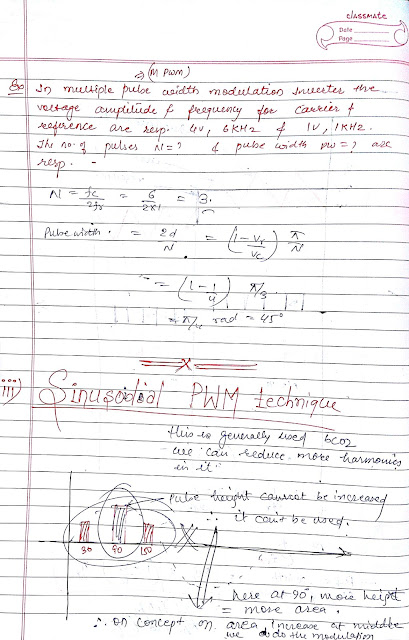 classmate
Date
Page
→ (M PWM)
Q In multiple pulse width modulation Inverter the
voltage amplitude & frequency for carrier &
reference are resp. 4V, 6KHz & 1V, 1KHz.
The no. of pulses N=? & pulse width pw=? are
resp. -
N = fc/2fr = 6/2×1 = 3.
Pulse width. = 2d/N = (1-Vr/Vc) π/N
= (1-1/4) π/3
= π/4 rad = 45°
x
iii) Sinusoidal PWM technique
this is generally used bcoz
we can reduce more harmonics
in it
pulse height cannot be increased
∴ it can't be used.
30 90 150
here at 90°, more height
= more area.
∴ on concept of area increase at middle
we do the modulation